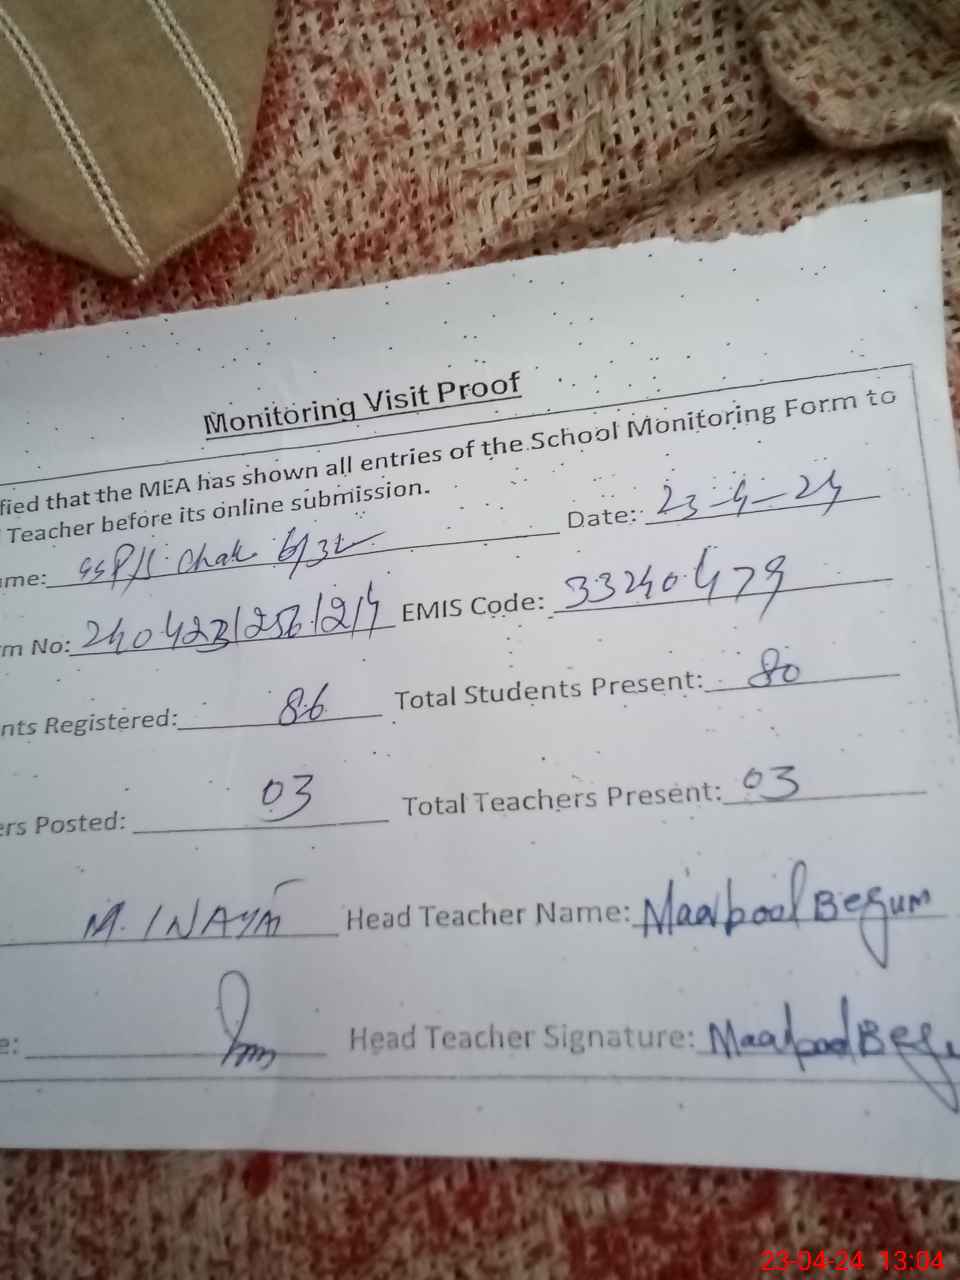 Monitoring Visit Proof
fied that the MEA has shown all entries of the School Monitoring Form to
Teacher before its online submission.
ame: Chak 6/32 Date: 23-4-24
m No: 240423/256/214 EMIS Code: 33240479
nts Registered: 86 Total Students Present: 80
ers Posted: 03 Total Teachers Present: 03
M. INAYAT Head Teacher Name: Maqbool Begum
e: Head Teacher Signature: Maqbool Begu
23-04-24 13:04